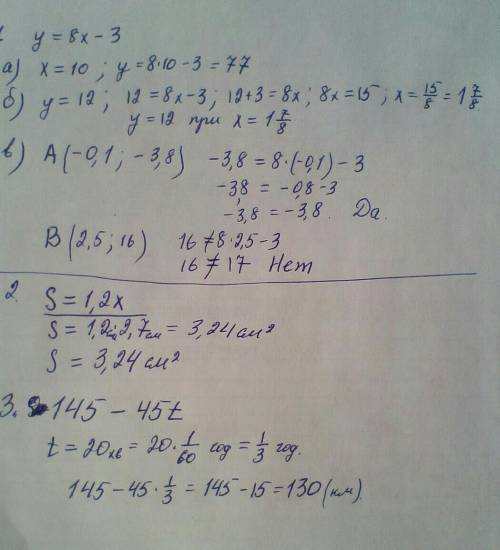 1 y = 8x - 3
а) x = 10 ; y = 8·10 - 3 = 77
б) y = 12 ; 12 = 8x - 3 ; 12 + 3 = 8x ; 8x = 15 ; x = 15/8 = 1 7/8
y = 12 при x = 1 7/8
в) A (-0,1 ; -3,8) -3,8 = 8·(-0,1) - 3
-3,8 = -0,8 - 3
-3,8 = -3,8. Да.
B (2,5 ; 16) 16 ≠ 8·2,5 - 3
16 ≠ 17 Нет
2. S = 1,2x
S = 1,2см·2,7см = 3,24 см²
S = 3,24 см²
3. 145 - 45t
t = 20хв = 20·1/60 год = 1/3 год.
145 - 45·1/3 = 145 - 15 = 130 (км).